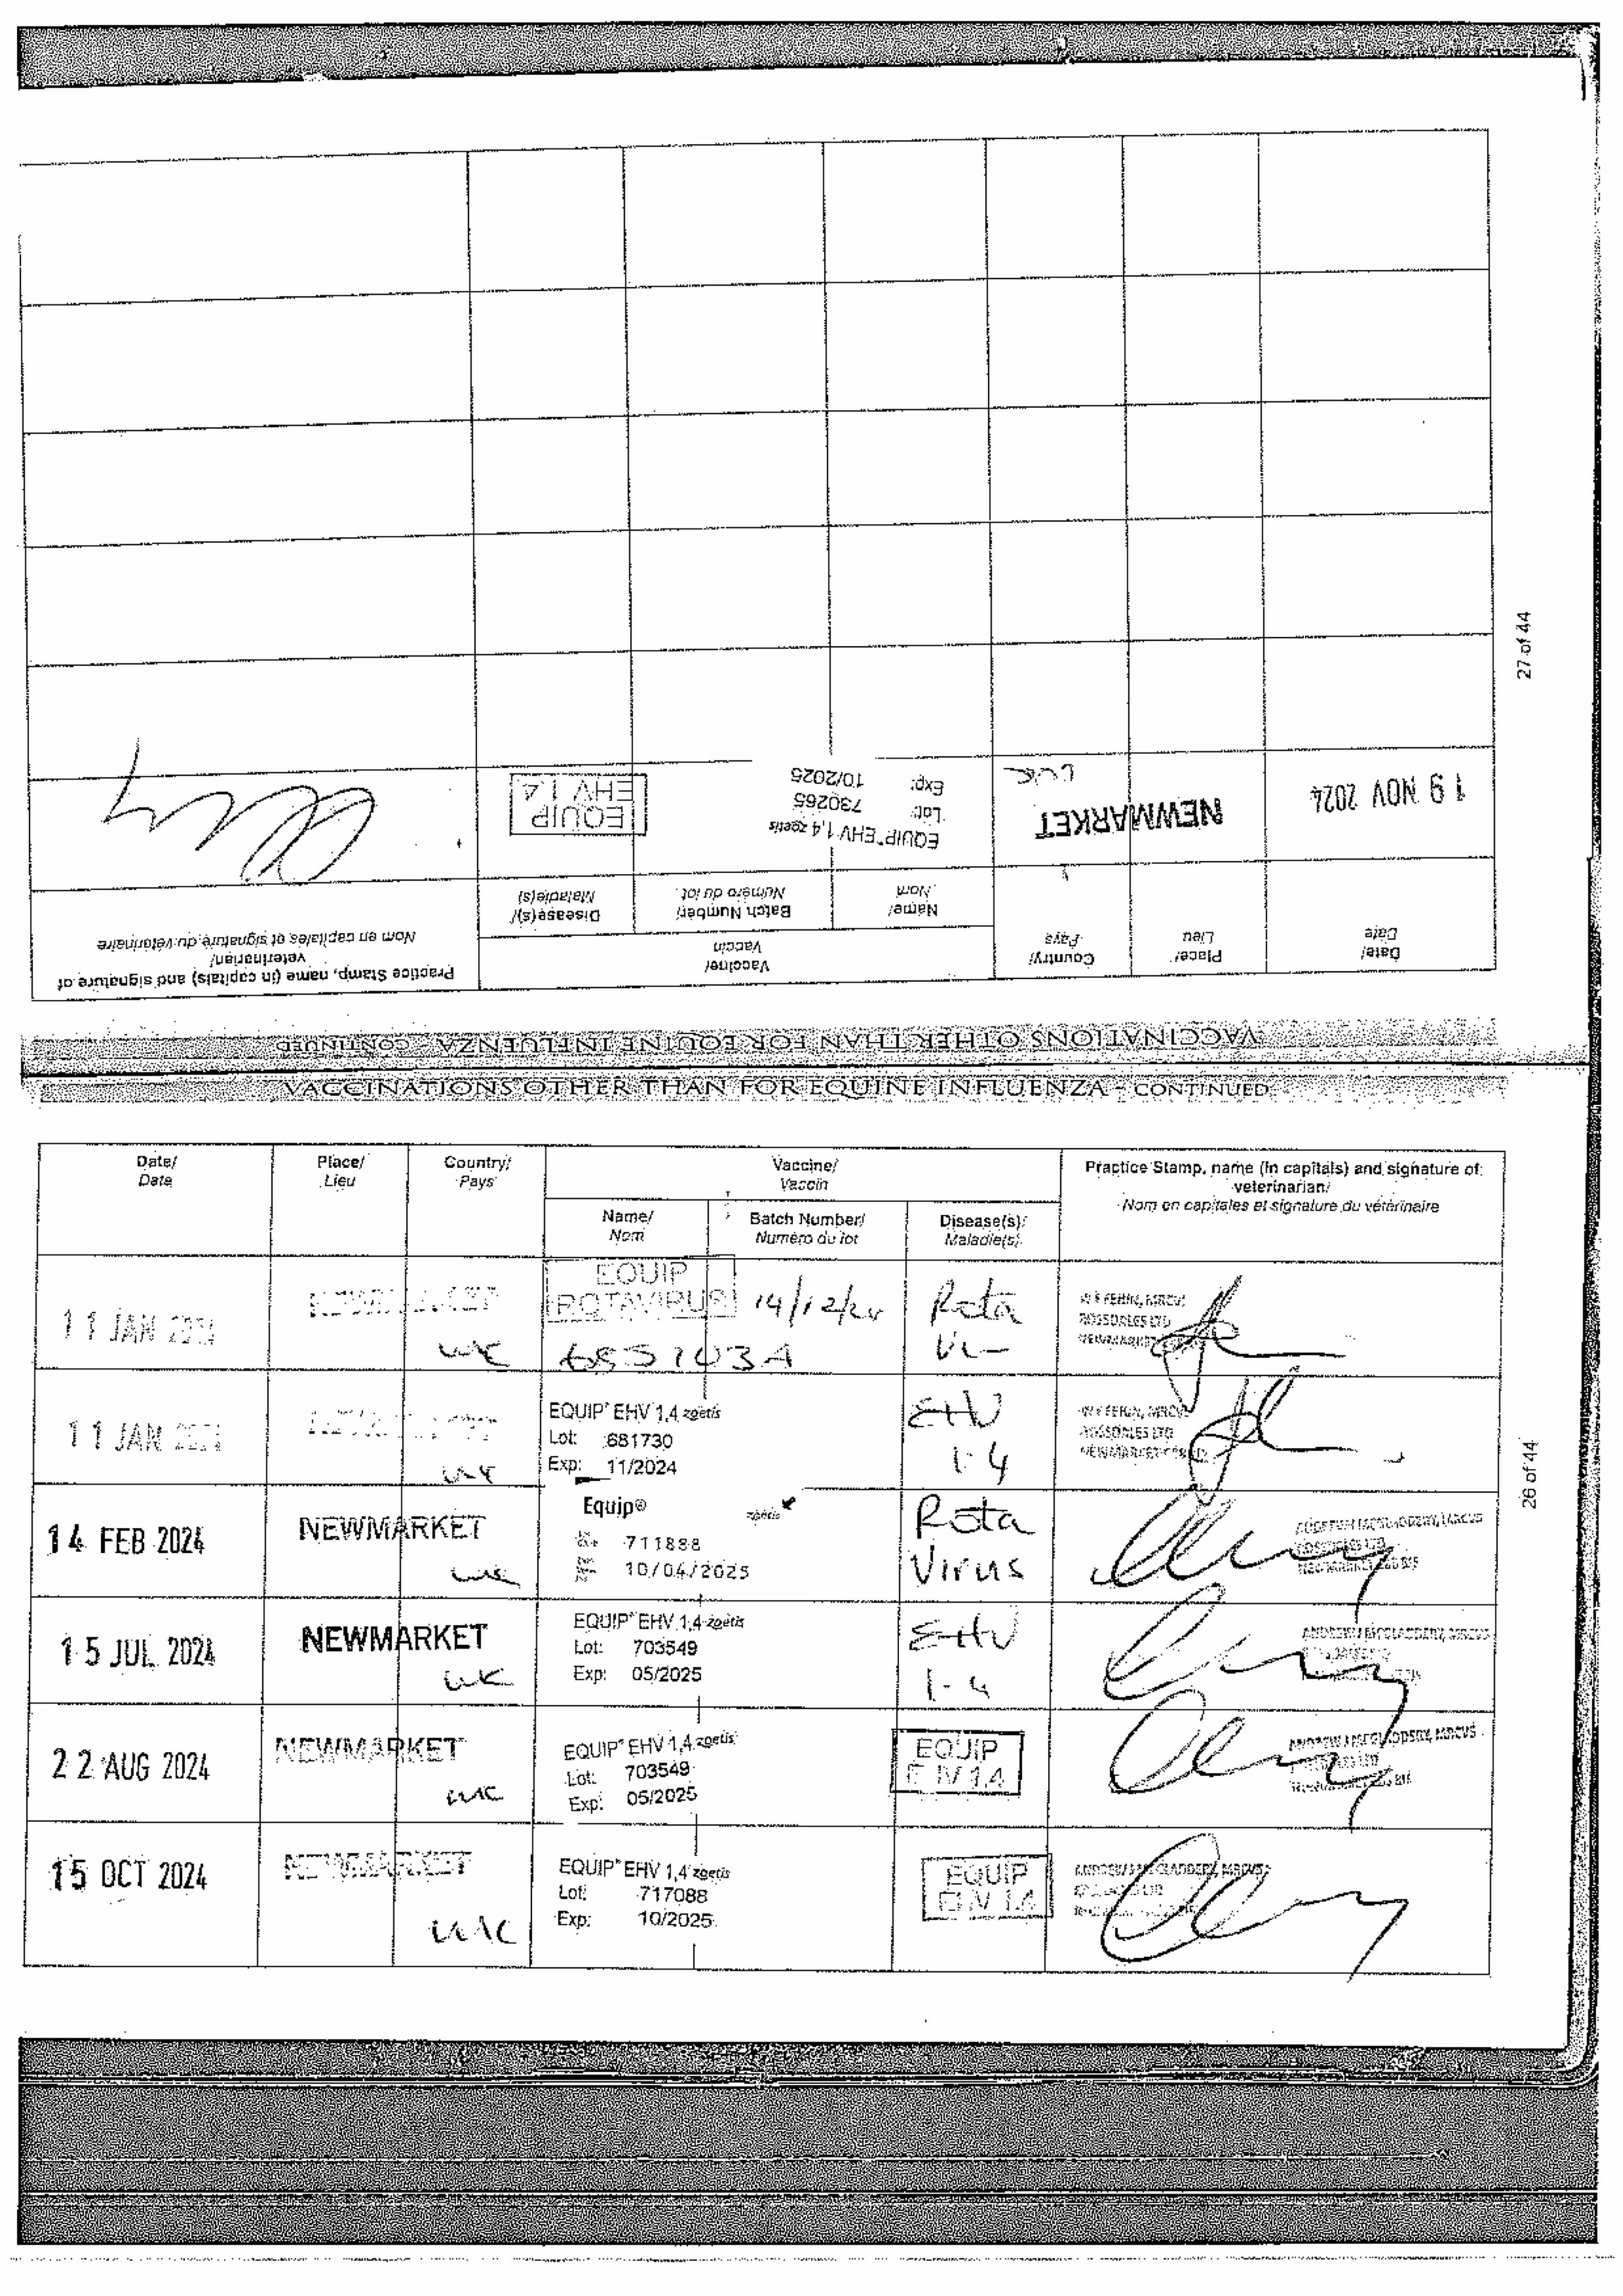 VACCINATIONS OTHER THAN FOR EQUINE INFLUENZA - CONTINUED
Date/ Place/ Country/ Vaccine/ Practice Stamp, name (in capitals) and signature of
Date Lieu Pays Vaccin veterinarian/
Nom en capitales et signature du vétérinaire
Name/ Batch Number/ Disease(s)/
Nom Numéro du lot Maladie(s)
19 NOV 2024 NEWMARKET UK
EQUIP EHV 1,4 zoetis
Lot: 730265
Exp: 10/2025
EQUIP
EHV 1.4
27 of 44
VACCINATIONS OTHER THAN FOR EQUINE INFLUENZA - CONTINUED
Date/ Place/ Country/ Vaccine/ Practice Stamp, name (in capitals) and signature of
Date Lieu Pays Vaccin veterinarian/
Nom en capitales et signature du vétérinaire
Name/ Batch Number/ Disease(s)/
Nom Numéro du lot Maladie(s)
11 JAN NEWMARKET UK
EQUIP
ROTAVIRUS 14/12/24 Rota
ROSSDALES LTD
NEWMARKET
11 JAN NEWMARKET UK
EQUIP EHV 1,4 zoetis
Lot: 681730
Exp: 11/2024
EHV
1-4
ROSSDALES LTD
14 FEB 2024 NEWMARKET UK
Equip® zoetis
711888
10/04/2025
Rota
Virus
15 JUL 2024 NEWMARKET UK
EQUIP EHV 1,4 zoetis
Lot: 703549
Exp: 05/2025
EHV
1-4
22 AUG 2024 NEWMARKET UK
EQUIP EHV 1,4 zoetis
Lot: 703549
Exp: 05/2025
EQUIP
1.4
15 OCT 2024 NEWMARKET UK
EQUIP EHV 1,4 zoetis
Lot: 717088
Exp: 10/2025
EQUIP
1.4
26 of 44